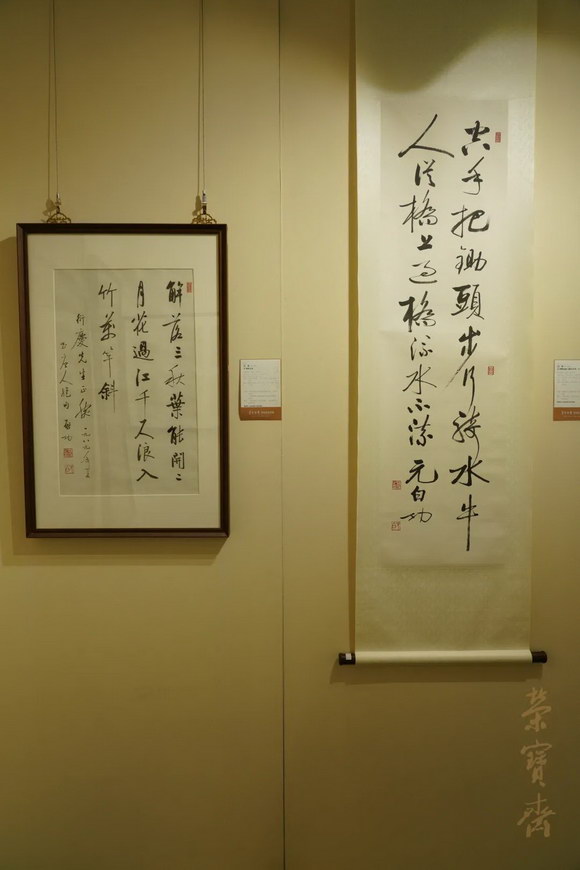 空手把鋤頭步行騎水牛
人從橋上過橋流水不流 元白
功
解落三秋葉能開二
月花過江千尺浪入
竹萬竿斜
先生正 一九八七年
啟功
榮寶齋